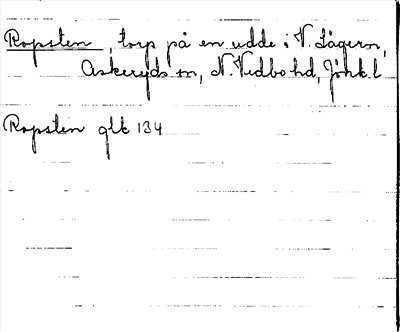 Ropsten, torp på en udde i V. Lägern,
Askeryds sn, N. Vedbo hd, Jönk. l.
Ropsten glk 134